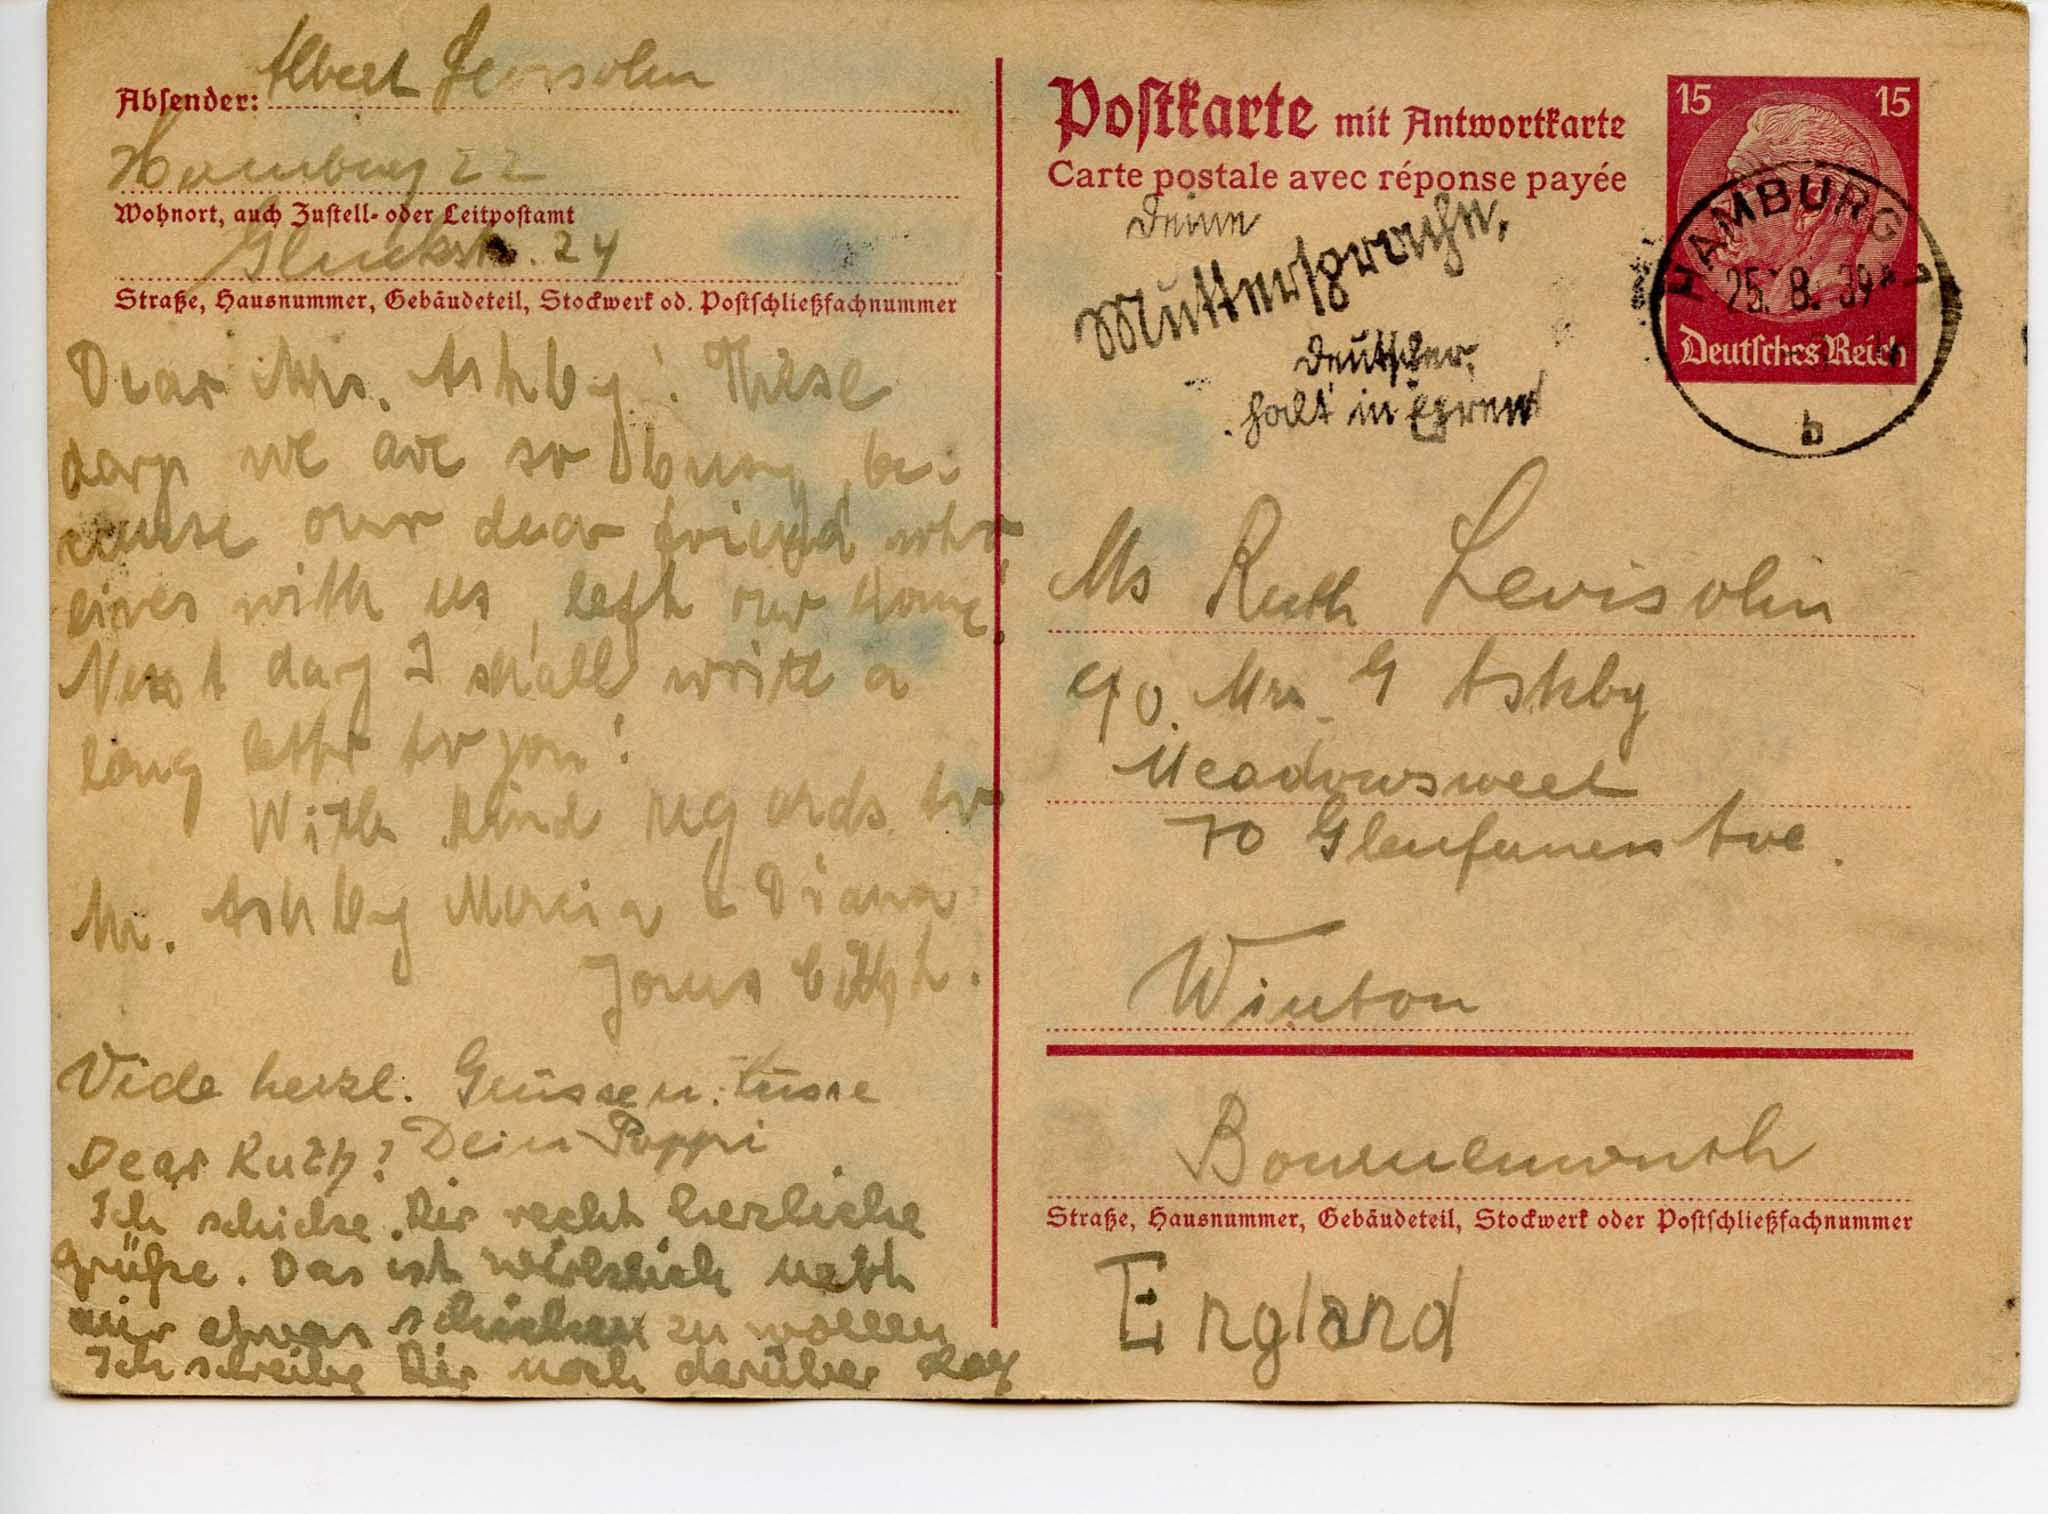 Absender: Albert Levisohn
Hamburg 22
Wohnort, auch Zustell- oder Leitpostamt
Gluckstr. 24
Straße, Hausnummer, Gebäudeteil, Stockwerk od. Postschließfachnummer
Dear Mrs. Ashby! These
days we are so busy, be-
cause our dear friend who
lives with us, left our home!
Next day I shall write a
long letter to you!
With kind regards to
Mr. Ashby Mercia & Diana
Yours
Viele herzl. Grüsse u. Küsse
Dein Pappi
Dear Ruth!
Ich schicke Dir recht herzliche
Grüße. Das ist wirklich nett
mir etwas schicken zu wollen
Ich schreibe Dir noch darüber
Postkarte mit Antwortkarte
Carte postale avec réponse payée
15 15
Deutsches Reich
HAMBURG
25. 8. 39
b
Deine
Muttersprache,
Deutscher,
halt in Ehren
Ms Ruth Levisohn
c/o. Mrs. G Ashby
Meadowsweet
70 Glenfurness Ave.
Winton
Bournemouth
Straße, Hausnummer, Gebäudeteil, Stockwerk oder Postschließfachnummer
England